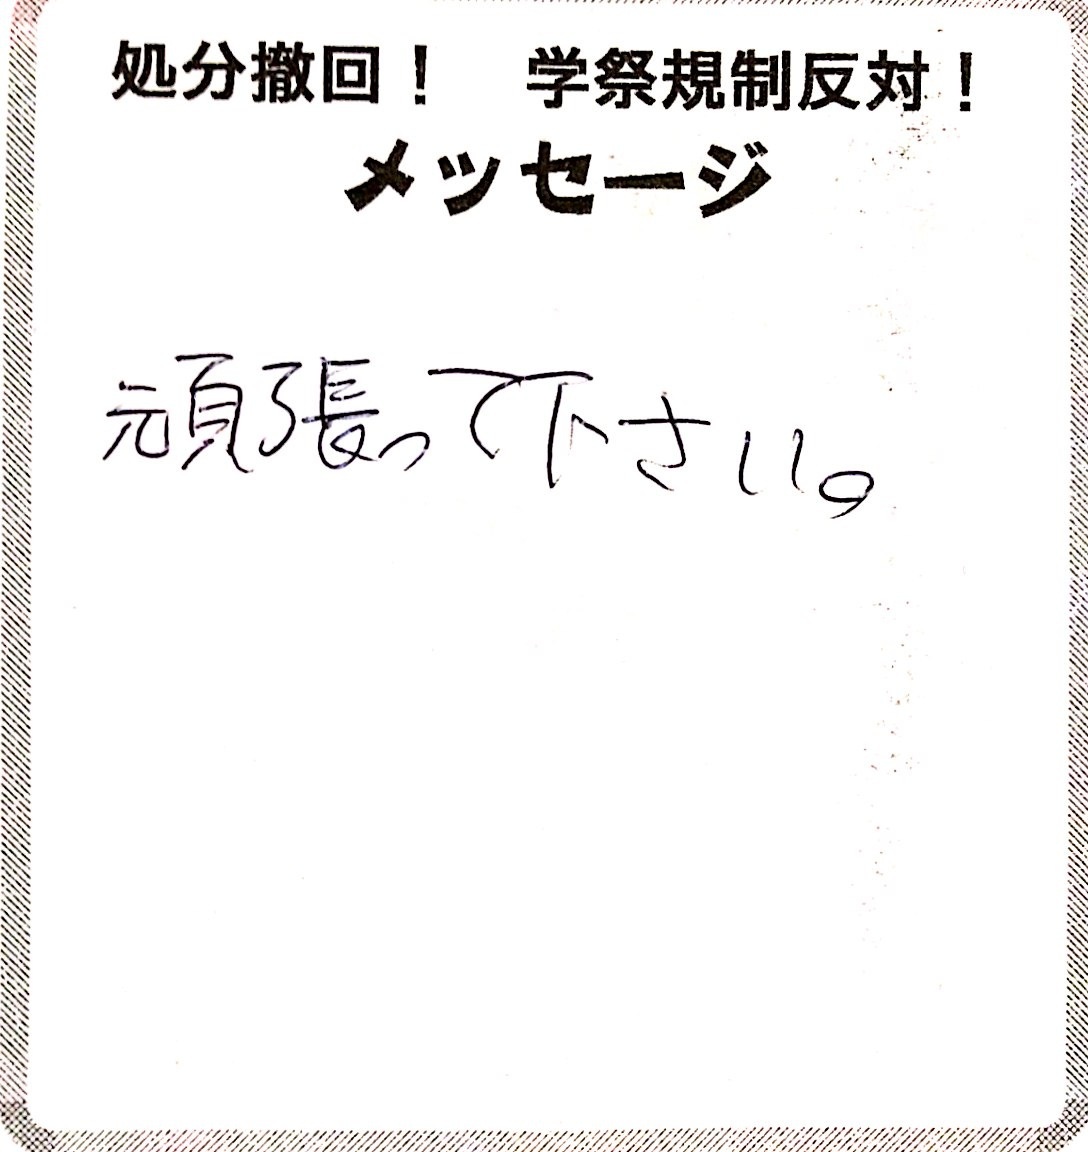 処分撤回！　学祭規制反対！
メッセージ
頑張って下さい。